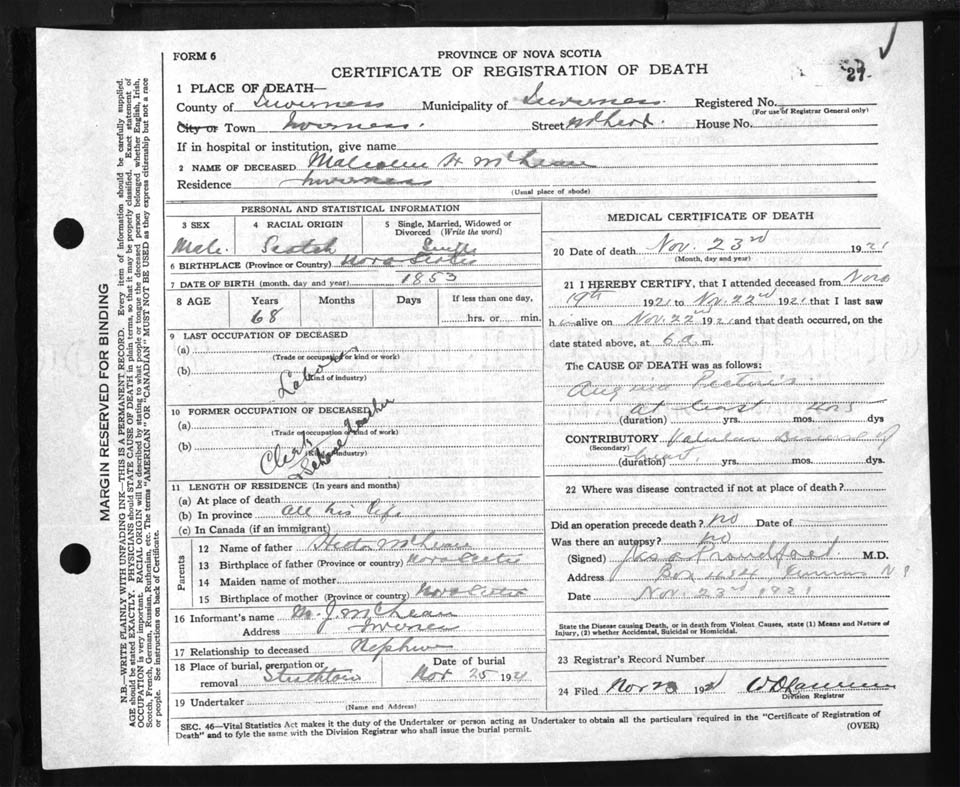 FORM 6
PROVINCE OF NOVA SCOTIA
CERTIFICATE OF REGISTRATION OF DEATH
27.
1 PLACE OF DEATH—
County of Inverness Municipality of Inverness. Registered No.
(For use of Registrar General only)
City or Town Inverness. Street House No.
If in hospital or institution, give name
2 NAME OF DECEASED Malcolm H McLean
Residence Inverness
(Usual place of abode)
PERSONAL AND STATISTICAL INFORMATION
3 SEX 4 RACIAL ORIGIN 5 Single, Married, Widowed or Divorced (Write the word)
Male. Scotch Single
6 BIRTHPLACE (Province or Country) Nova Scotia
7 DATE OF BIRTH (month, day and year) 1853
8 AGE Years Months Days If less than one day,
68 hrs. or min.
9 LAST OCCUPATION OF DECEASED
(a)
(Trade or occupation or kind or work)
(b) Laborer
(Kind of industry)
10 FORMER OCCUPATION OF DECEASED
(a)
(Trade or occupation or kind of work)
(b) Clerk & School Teacher
(Kind of industry)
11 LENGTH OF RESIDENCE (In years and months)
(a) At place of death
(b) In province all his life
(c) In Canada (if an immigrant)
Parents
12 Name of father Hector McLean
13 Birthplace of father (Province or country) Nova Scotia
14 Maiden name of mother
15 Birthplace of mother (Province or country) Nova Scotia
16 Informant's name M. J. McLean
Address Inverness
17 Relationship to deceased Nephew
18 Place of burial, cremation or removal Date of burial
Strathlorne Nov 25 1921
19 Undertaker
(Name and Address)
MEDICAL CERTIFICATE OF DEATH
20 Date of death Nov. 23rd 1921
(Month, day and year)
21 I HEREBY CERTIFY, that I attended deceased from Nov.
19th 1921 to Nov. 22nd 1921 that I last saw
h im alive on Nov. 22nd 1921 and that death occurred, on the
date stated above, at 6 a. m.
The CAUSE OF DEATH was as follows:
Angina Pectoris
at least
(duration) yrs. mos. dys
CONTRIBUTORY Valvular Disease of
(Secondary)
heart. (duration) yrs. mos. dys.
22 Where was disease contracted if not at place of death?
Did an operation precede death? no Date of
Was there an autopsy? no
(Signed) Proudfoot M.D.
Address Box Inverness N S
Date Nov. 23rd 1921
State the Disease causing Death, or in death from Violent Causes, state (1) Means and Nature of
Injury, (2) whether Accidental, Suicidal or Homicidal.
23 Registrar's Record Number
24 Filed Nov 23 1921
Division Registrar
SEC. 46—Vital Statistics Act makes it the duty of the Undertaker or person acting as Undertaker to obtain all the particulars required in the "Certificate of Registration of
Death" and to fyle the same with the Division Registrar who shall issue the burial permit.
(OVER)
MARGIN RESERVED FOR BINDING
N.B.—WRITE PLAINLY WITH UNFADING INK—THIS IS A PERMANENT RECORD. Every item of information should be carefully supplied.
AGE should be stated EXACTLY. PHYSICIANS should STATE CAUSE OF DEATH in plain terms, so that it may be properly classified. Exact statement of
OCCUPATION is very important. RACIAL ORIGIN will be described by stating to what people or tongue the deceased person belonged whether English, Irish,
Scotch, French, German, Russian, Ruthenian, etc. The terms "AMERICAN" OR "CANADIAN" MUST NOT BE USED as they express citizenship but not a race
or people. See instructions on back of Certificate.